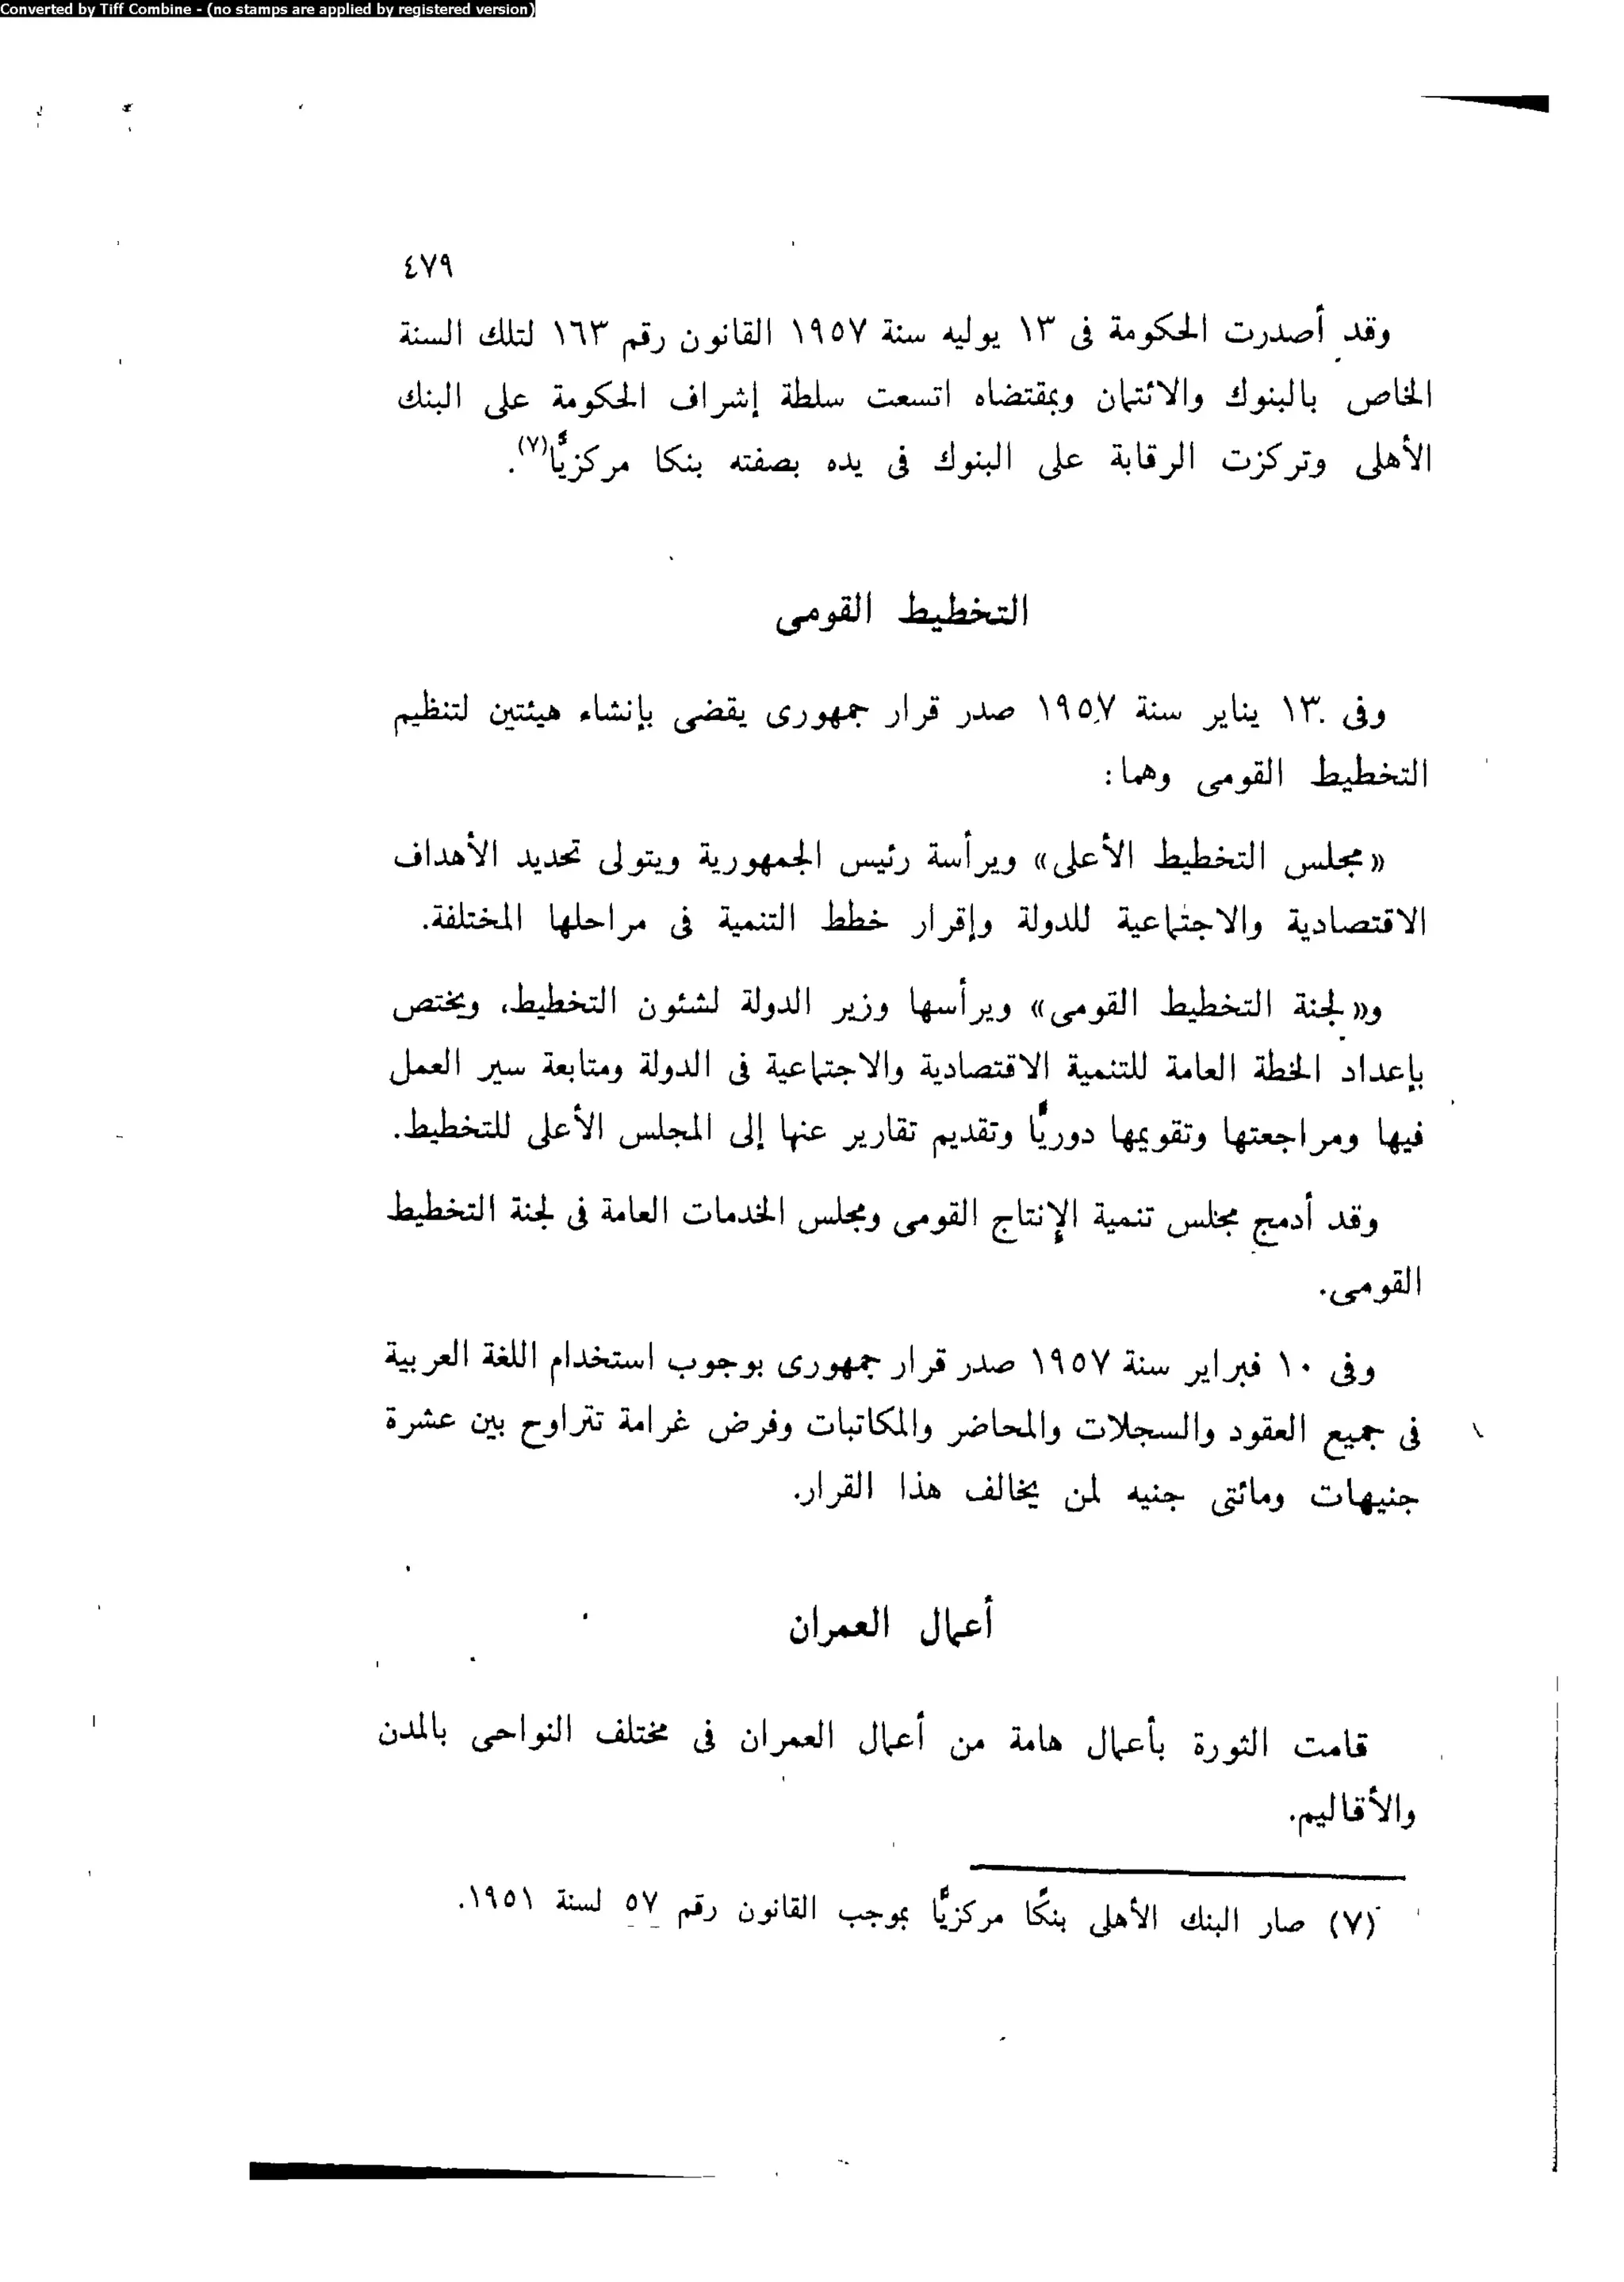 Converted by Tiff Combine - (no stamps are applied by registered version)
٤٧٩
وقد أصدرت الحكومة فى ١٣ يوليه سنة ١٩٥٧ القانون رقم ١٦٣ لتلك السنة
الخاص بالبنوك والائتمان وبمقتضاه اتسعت سلطة إشراف الحكومة على البنك
الأهلى وتركزت الرقابة على البنوك فى يده بصفته بنكا مركزيًّا(٧).
التخطيط القومى
وفى ١٣ يناير سنة ١٩٥٧ صدر قرار جمهورى يقضى بإنشاء هيئتين لتنظيم
التخطيط القومى وهما:
«مجلس التخطيط الأعلى» ويرأسة رئيس الجمهورية ويتولى تحديد الأهداف
الاقتصادية والاجتماعية للدولة وإقرار خطط التنمية فى مراحلها المختلفة.
و«لجنة التخطيط القومى» ويرأسها وزير الدولة لشئون التخطيط، ويختص
بإعداد الخطة العامة للتنمية الاقتصادية والاجتماعية فى الدولة ومتابعة سير العمل
فيها ومراجعتها وتقويمها دوريًّا وتقديم تقارير عنها إلى المجلس الأعلى للتخطيط.
وقد أدمج مجلس تنمية الإنتاج القومى ومجلس الخدمات العامة فى لجنة التخطيط
القومى.
وفى ١٠ فبراير سنة ١٩٥٧ صدر قرار جمهورى بوجوب استخدام اللغة العربية
فى جميع العقود والسجلات والمحاضر والمكاتبات وفرض غرامة تتراوح بين عشرة
جنيهات ومائتى جنيه لمن يخالف هذا القرار.
أعمال العمران
قامت الثورة بأعمال هامة من أعمال العمران فى مختلف النواحى بالمدن
والأقاليم.
(٧) صار البنك الأهلى بنكًا مركزيًّا بموجب القانون رقم ٥٧ لسنة ١٩٥١.